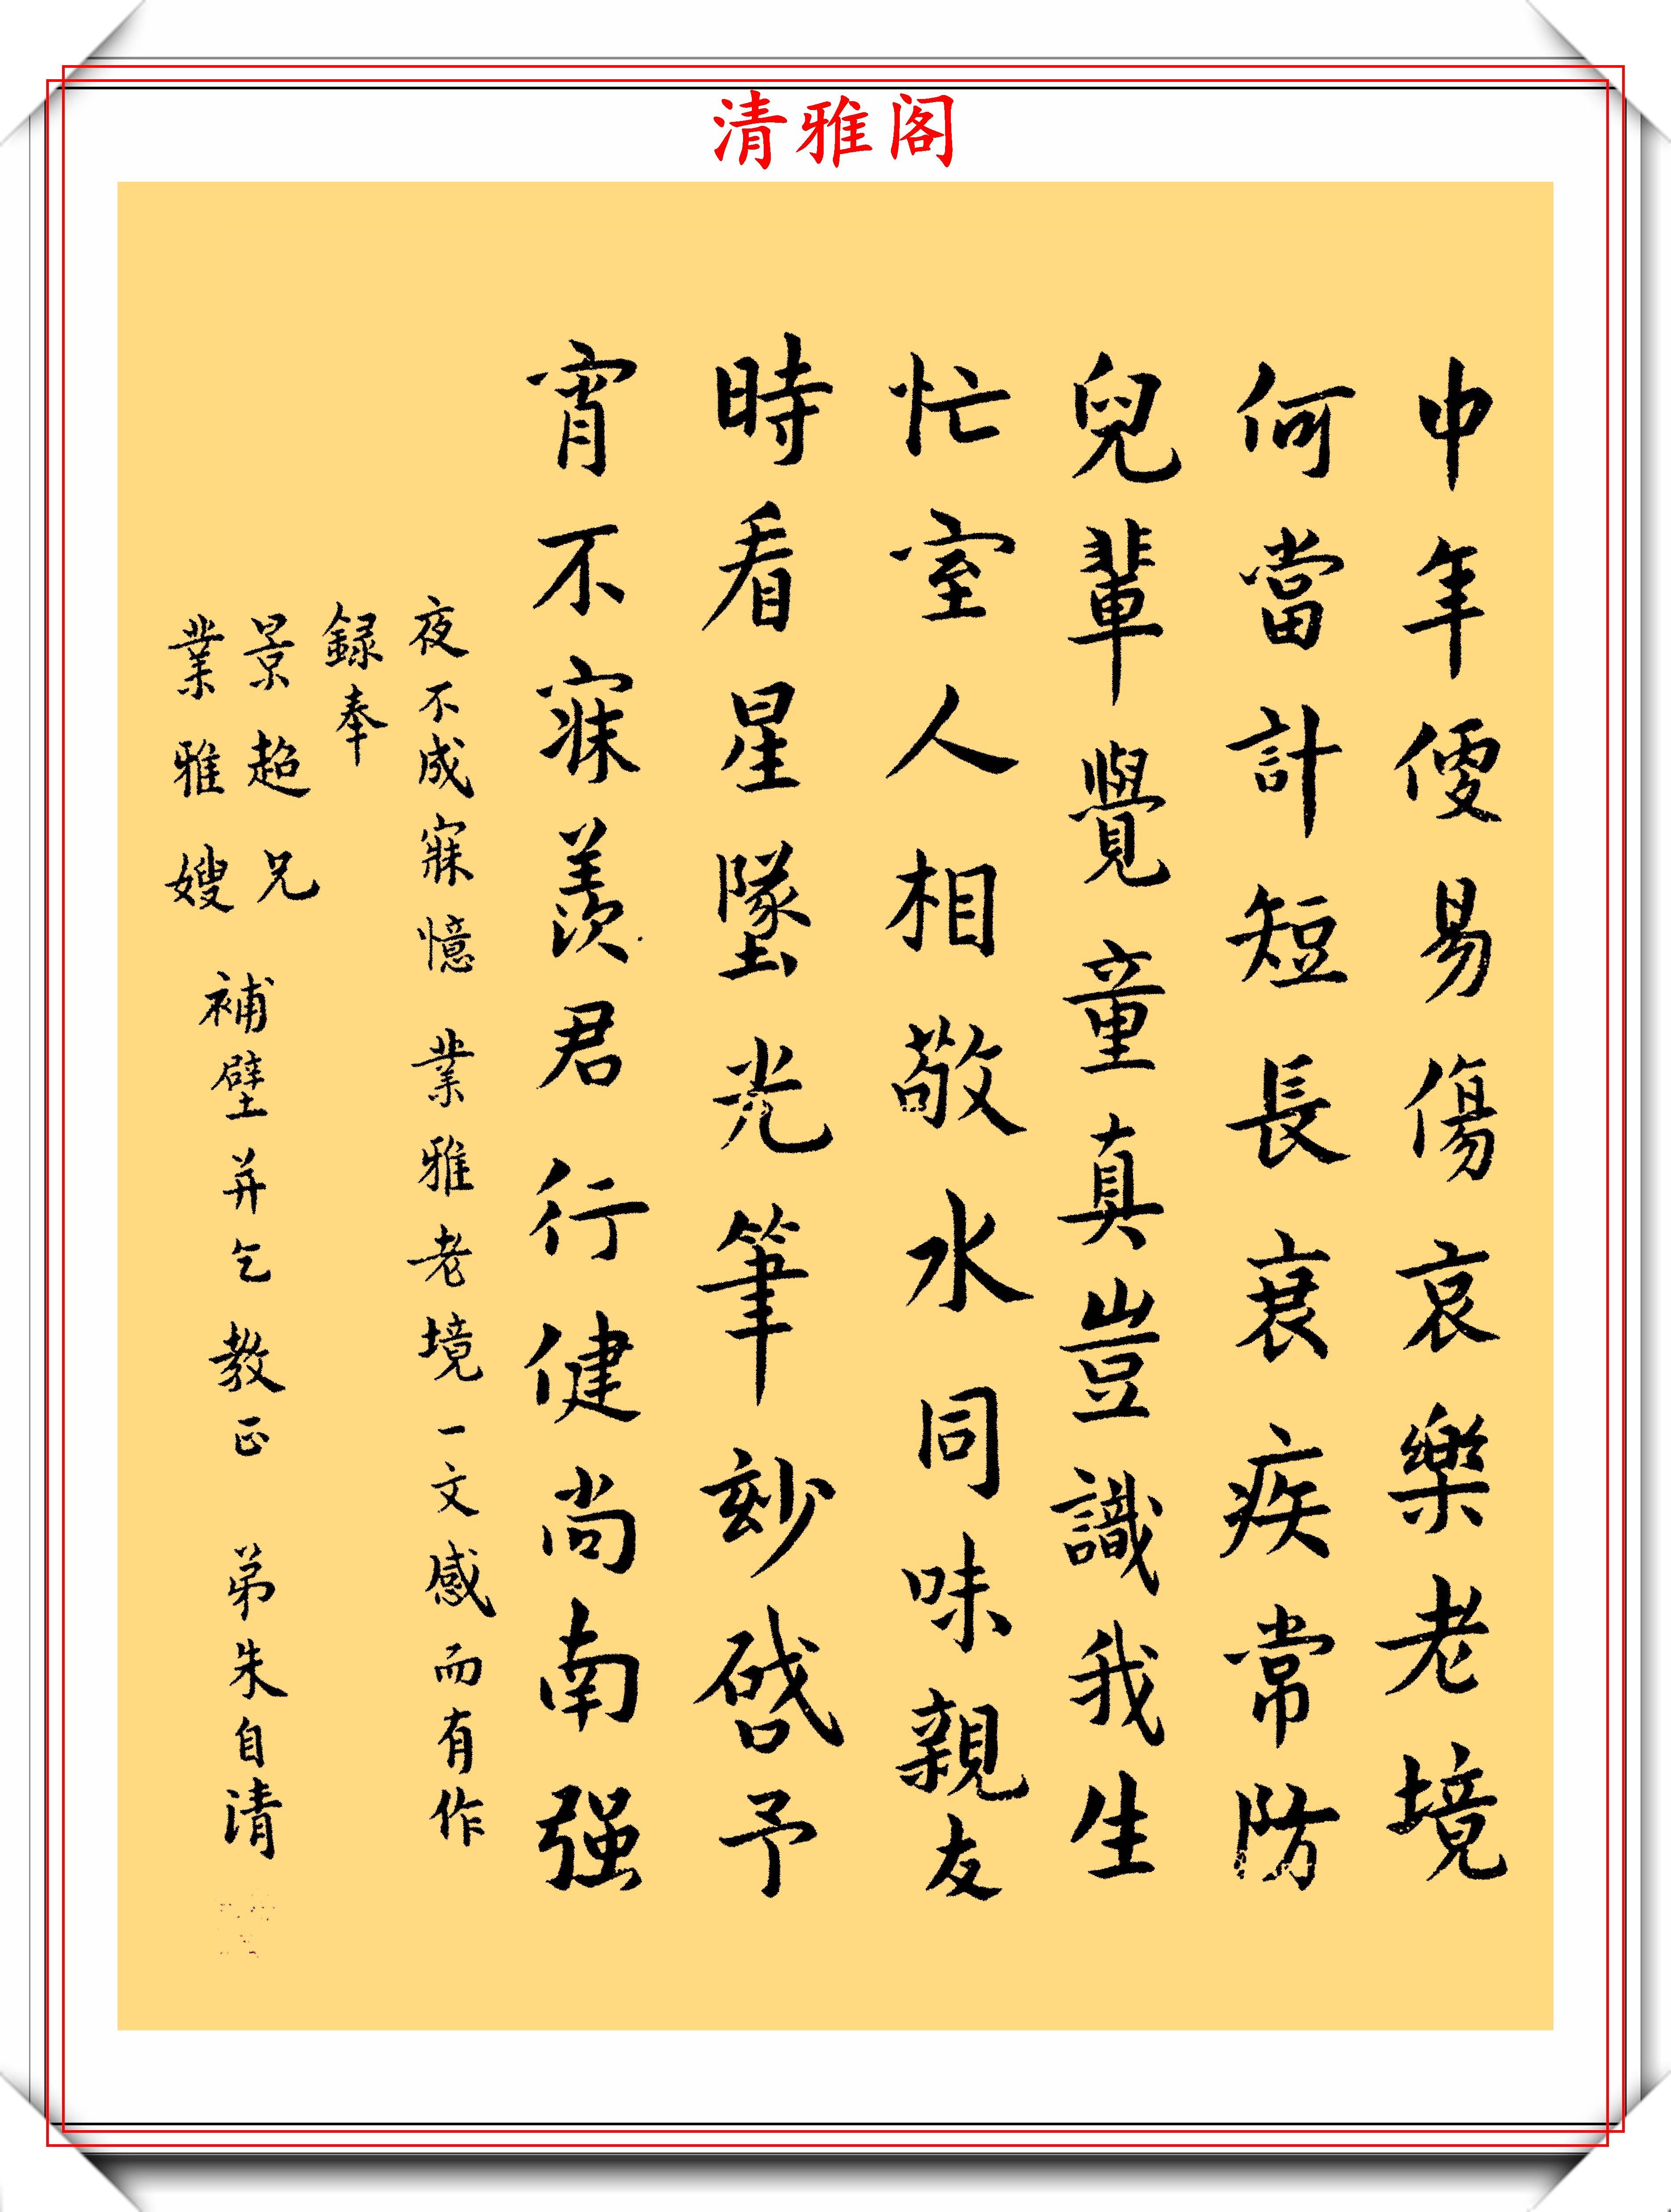 清雅阁
中年便易傷哀樂老境
何當計短長衰疾常防
兒輩覺童真豈識我生
忙室人相敬水同味親友
時看星墜光筆妙啓予
宵不寐羨君行健尚南强
夜不成寐憶業雅老境一文感而有作
録奉
景超兄
業雅嫂
補壁并乞教正 弟朱自清